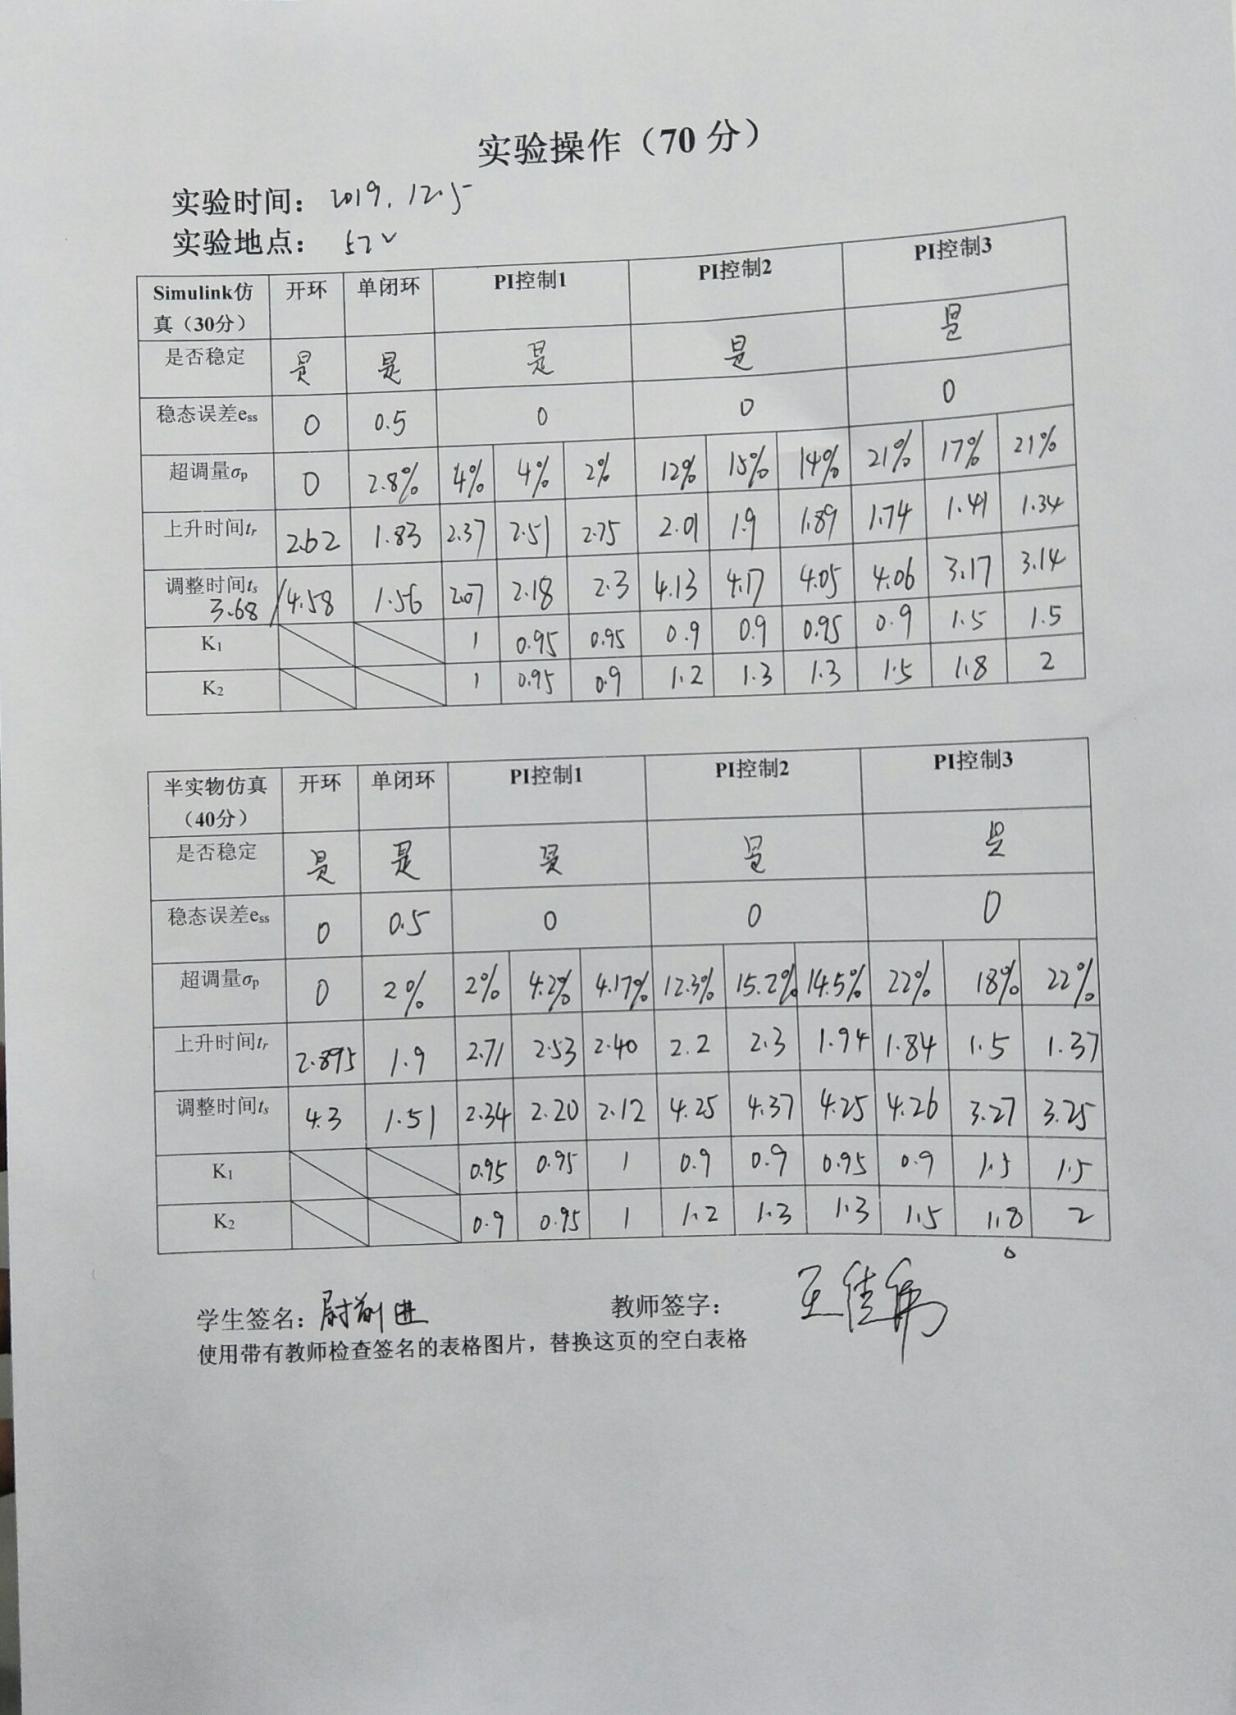 实验操作（70 分）
实验时间：2019.12.5
实验地点：
Simulink仿真（30分） 开环 单闭环 PI控制1 PI控制2 PI控制3
是否稳定 是 是 是 是 是
稳态误差ess 0 0.5 0 0 0
超调量σp 0 2.8% 4% 4% 2% 12% 15% 14% 21% 17% 21%
上升时间tr 2.62 1.83 2.37 2.51 2.75 2.01 1.9 1.89 1.74 1.41 1.34
调整时间ts 3.68/4.58 1.56 2.07 2.18 2.3 4.13 4.17 4.05 4.06 3.17 3.14
K1 1 0.95 0.95 0.9 0.9 0.95 0.9 1.5 1.5
K2 1 0.95 0.9 1.2 1.3 1.3 1.5 1.8 2
半实物仿真（40分） 开环 单闭环 PI控制1 PI控制2 PI控制3
是否稳定 是 是 是 是 是
稳态误差ess 0 0.5 0 0 0
超调量σp 0 2% 2% 4.2% 4.17% 12.3% 15.2% 14.5% 22% 18% 22%
上升时间tr 2.895 1.9 2.71 2.53 2.40 2.2 2.3 1.94 1.84 1.5 1.37
调整时间ts 4.3 1.51 2.34 2.20 2.12 4.25 4.37 4.25 4.26 3.27 3.25
K1 0.95 0.95 1 0.9 0.9 0.95 0.9 1.5 1.5
K2 0.9 0.95 1 1.2 1.3 1.3 1.5 1.8 2
学生签名：尉前进 教师签字：王佳伟
使用带有教师检查签名的表格图片，替换这页的空白表格